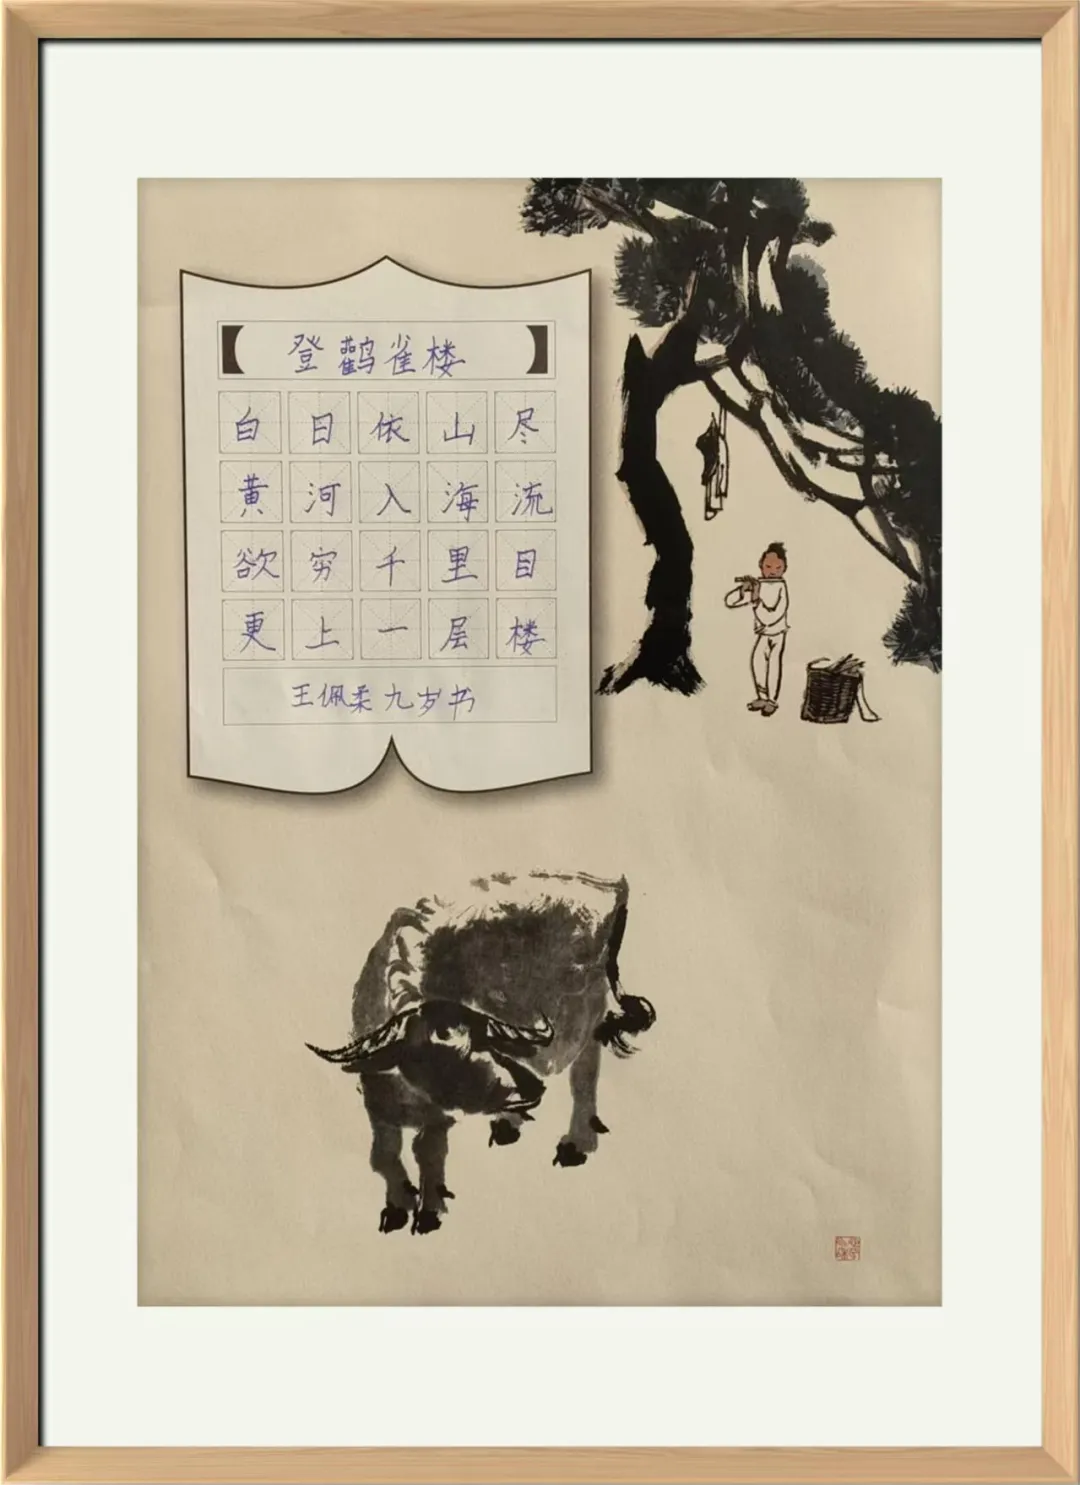 登鹳雀楼
白日依山尽
黄河入海流
欲穷千里目
更上一层楼
王佩柔九岁书